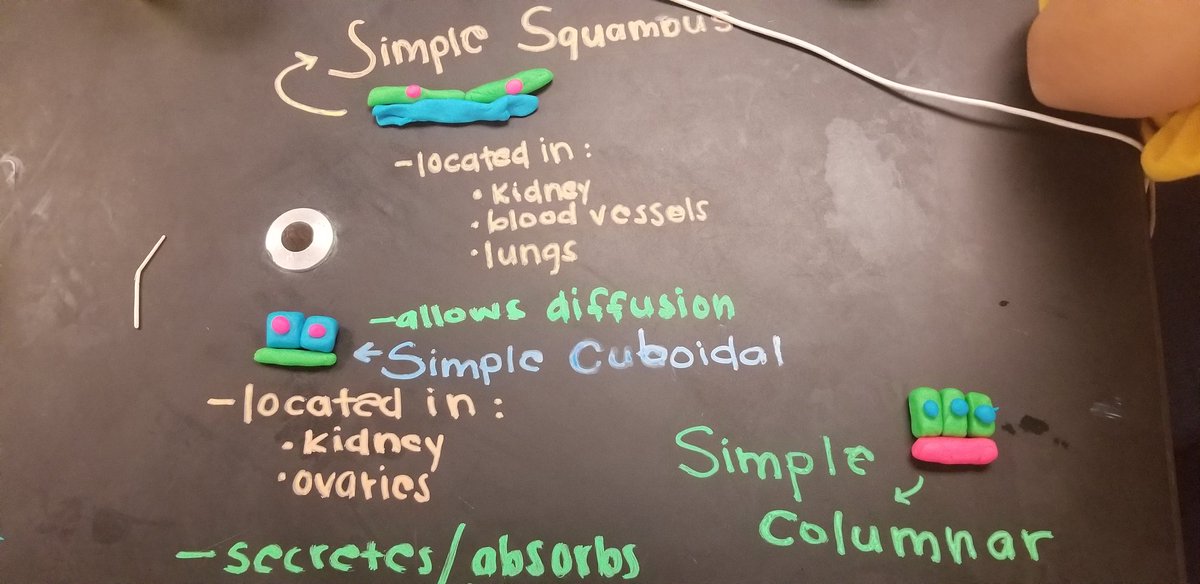 Simple Squamous
-located in:
• kidney
• blood vessels
• lungs
-allows diffusion
Simple Cuboidal
-located in:
• kidney
• ovaries
-secretes/absorbs
Simple
Columnar